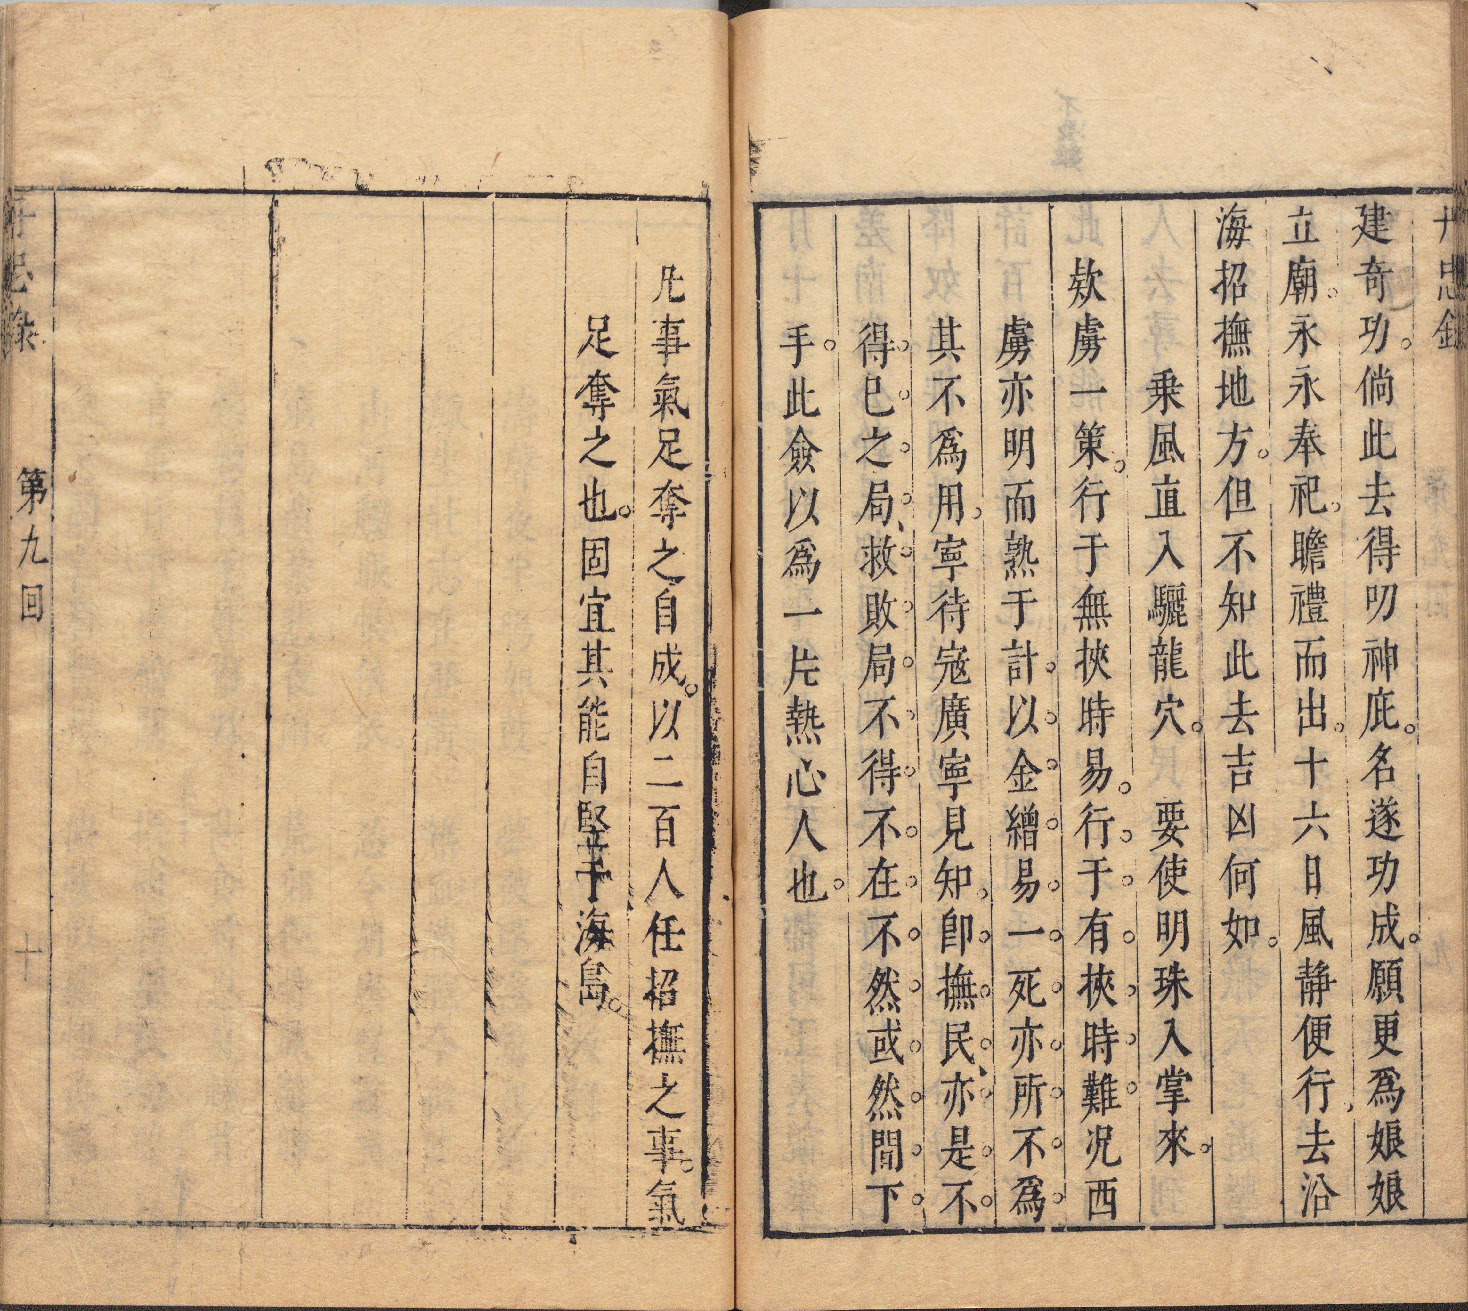 建奇功。倘此去得叨神庇。名遂功成。願更爲娘娘
立廟。永永奉祀。瞻禮而出。十六日風静便行去沿
海招撫地方。但不知此去吉凶何如。
乗風直入驪龍穴。　要使明珠入掌來。
欵虜一策。行于無挾時易。行于有挾時難况西
虜亦明而熟于計。以金繒易一死亦所不爲
其不爲用。寧待寇廣寧見知。卽撫民亦是不
得已之局、救敗局不得不在不然或然間下
手。此僉以爲一片熱心人也。
凡事氣足奪之自成。以二百人任招撫之事。氣
足奪之也。固宜其能自堅于海島。
第九回
十